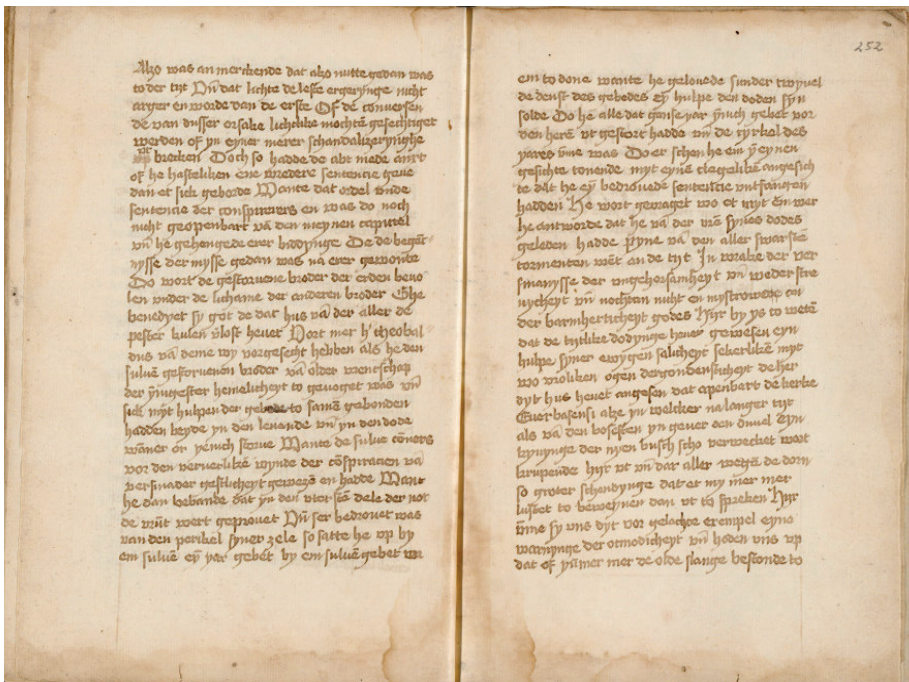 Also was an merckende dat also nutte gedan was
to der tyt Vn̄ dat lichte de leste ergerynge nicht
arger en worde dan de erste Of de conversen
de van dusser orsake lichtlike mochtē gesechtiget
werden of yn eyner merer schandalizerynghe
vp brecken Doch so hadde de abt mede
of he hasteliken ene wredere sentencie geue
dan et sick geborde Wante dat ordel vnde
sentencie der conspiratoers en was do noch
nicht geopenbart vā den meynen capittel
vn̄ he gehengede erer biddynge De de
nysse der mysse gedan was na erer gewonte
Do wort de gestorvene broder der erden beuo
len vnder de lichame der anderen broder Ghe
benedyet sy got de dat hus vā der aller
pester kulen vlost heuet Vort mer h' theobal
dus vā deme wy vorgesecht hebben als he den
suluē gestorvenen broder vā older vrentschap
der ynnigester hemelicheyt to gevoget was vn̄
sick myt hulpen der gebede to samē gebonden
hadden beyde yn den levende vn̄ yn den dode
wāner or yenich storue Wante de sulue cōuers
vor den veruerlikē wynde der cōspiracien vā
versmader gestlicheyt gewezē en hadde Want
he dan bekande dat yn den dele der not
de vrūt wert geprovet Vn̄ ser bedrouet was
van den perikel syner zele so satte he vp by
em suluē eȳ yar gebet by em suluē gebet
252
em to done wante he gelouede sunder twyuel
de denst des gebedes eȳ hulpe den doden syn
solde Do he alle dat ganse yar ynnich gebet vor
den herē vt gestort hadde vn̄ de cyrkel des
yares vme was Do er schen he em ȳ eynen
gesichte tonende myt eynē clegelikē angesich
te dat he eȳ bedrouede sentencie vntfangen
hadden He wort gevraget wo et myt em wer
he antworde dat he vā der vre synes dodes
geleden hadde pyne vā den aller swarstē
tormenten wēt an de tyt In wrake der ver
smanysse der vngehorsamheyt vn̄ wederstre
nycheyt vn̄ nochtan nicht en mystrowede
der barmherticheyt godes Hyr by ys to wetē
dat de tytlike dodynge heuet gewesen eyn
hulpe syner ewygen salicheyt sekerlikē myt
wo vroliken ogen der gonsticheyt de her
dyt hus heuet angesen dat apenbart de kerke
Euerbasensi alze yn welcker na langer tyt
als vā den bosesten yn gever een duuel Eyn
bynynge der nyen busch scho verwecket wort
krupende hyr vt vn̄ dar aller wegē de dorn
so groter schendynge dat et my mer mer
lustet to beweynen dan vt to spreken Hyr
vme sy vns dyt vor gelachte exempel eyne
warnynge der otmodicheyt vn̄ hoden vns vp
dat of ynmer mer de olde slange bestonde to